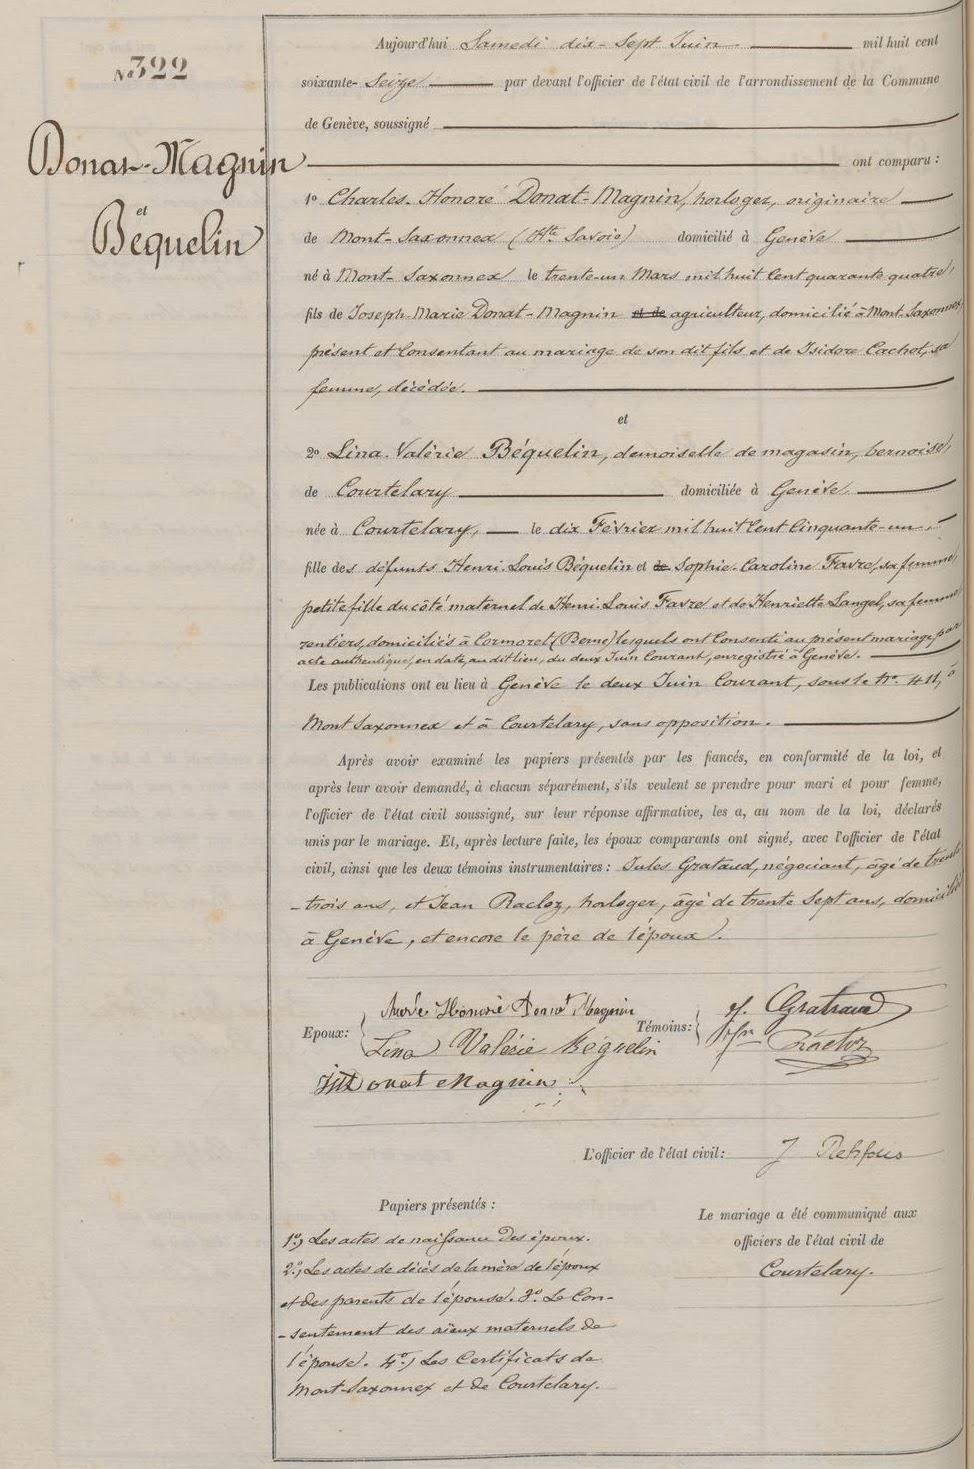 No 322
Donat-Magnin
et
Béquelin
Aujourd'hui Samedi dix-Sept Juin mil huit cent
soixante-Seize par devant l'officier de l'état civil de l'arrondissement de la Commune
de Genève, soussigné
ont comparu :
1º Charles-Honoré Donat-Magnin, horloger, originaire
de Mont-Saxonnex (Hte Savoie) domicilié à Genève
né à Mont-Saxonnex le trente-un Mars mil huit Cent quarante quatre,
fils de Joseph-Marie Donat-Magnin et de agriculteur, domicilié à Mont-Saxonnex,
présent et Consentant au mariage de son dit fils et de Isidore Cachot, sa
femme, décédée.
et
2º Lina-Valérie Béquelin, demoiselle de magasin, bernoise,
de Courtelary domiciliée à Genève,
née à Courtelary, le dix Février mil huit Cent Cinquante-un,
fille des défunts Henri-Louis Béquelin et de Sophie-Caroline Favre, sa femme
petite fille du côté maternel de Henri-Louis Favre et de Henriette Langel, sa femme
rentiers, domiciliés à Cormoret (Berne) lesquels ont Consenti au présent mariage par
acte authentique, en date, au dit lieu, du deux Juin Courant, enregistré à Genève.
Les publications ont eu lieu à Genève le deux Juin Courant, sous le No. 411, à
Mont Saxonnex et à Courtelary, sans opposition.
Après avoir examiné les papiers présentés par les fiancés, en conformité de la loi, et
après leur avoir demandé, à chacun séparément, s'ils veulent se prendre pour mari et pour femme,
l'officier de l'état civil soussigné, sur leur réponse affirmative, les a, au nom de la loi, déclarés
unis par le mariage. Et, après lecture faite, les époux comparants ont signé, avec l'officier de l'état
civil, ainsi que les deux témoins instrumentaires : Jules Grataud, négociant, âgé de trente
-trois ans, et Jean Racloz, horloger, âgé de trente Sept ans, domiciliés
à Genève, et encore le père de l'époux.
Epoux: Honoré Donat Magnin Témoins: J. Grataud
Lina Valérie Béguelin Jn Racloz
Donat Magnin
L'officier de l'état civil: J Rehfous
Papiers présentés :
1º, Les actes de naissance des époux.
2º, Les actes de décès de la mère de l'époux
et des parents de l'épouse. 3º Le Con-
-sentement des aïeux maternels de
l'épouse. 4º, Les Certificats de
Mont-Saxonnex et de Courtelary.
Le mariage a été communiqué aux
officiers de l'état civil de
Courtelary.